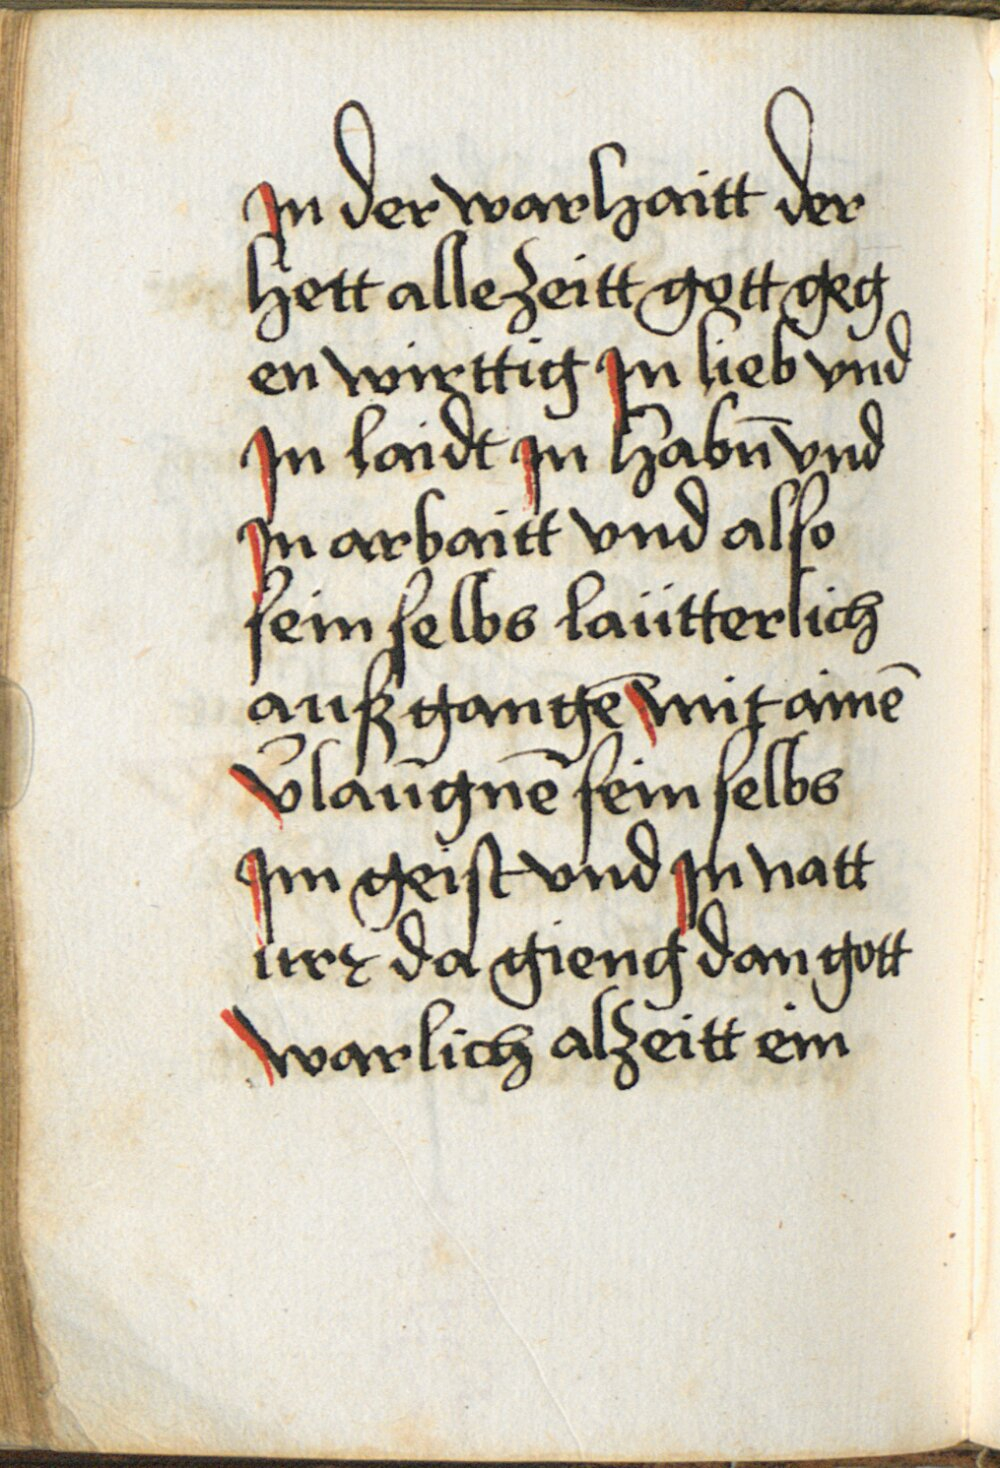 Jn der warhaitt der
hett allezeitt gott geg
en wirttig Jn lieb vnd
Jn laidt Jn habn̄ vnd
Jn arbaitt vnd also
sein selbs laütterlich
auß gangē mit ainē
v̄laūgnē sein selbs
Jm geist vnd Jn natt
urꝛ da gieng dan gott
warlich alzeitt ein